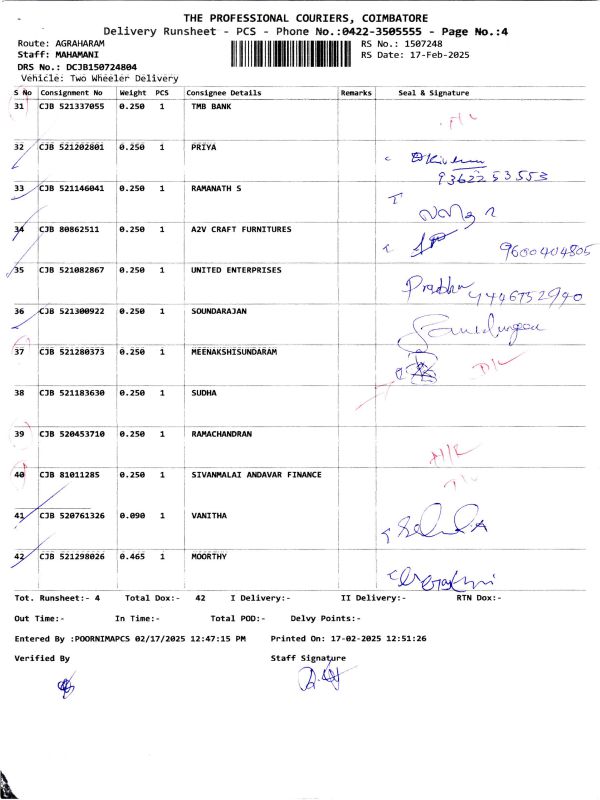 THE PROFESSIONAL COURIERS, COIMBATORE
Delivery Runsheet - PCS - Phone No.:0422-3505555 - Page No.:4
Route: AGRAHARAM
RS No.: 1507248
Staff: MAHAMANI
RS Date: 17-Feb-2025
DRS No.: DCJB150724804
Vehicle: Two Wheeler Delivery
S No Consignment No Weight PCS Consignee Details Remarks Seal & Signature
31 CJB 521337055 0.250 1 TMB BANK
32 CJB 521202801 0.250 1 PRIYA
9362253553
33 CJB 521146041 0.250 1 RAMANATH S
34 CJB 80862511 0.250 1 A2V CRAFT FURNITURES
9600404805
35 CJB 521082867 0.250 1 UNITED ENTERPRISES
Prabhu
36 CJB 521300922 0.250 1 SOUNDARAJAN
37 CJB 521280373 0.250 1 MEENAKSHISUNDARAM
38 CJB 521183630 0.250 1 SUDHA
39 CJB 520453710 0.250 1 RAMACHANDRAN
40 CJB 81011285 0.250 1 SIVANMALAI ANDAVAR FINANCE
41 CJB 520761326 0.090 1 VANITHA
42 CJB 521298026 0.465 1 MOORTHY
Tot. Runsheet:- 4 Total Dox:- 42 I Delivery:- II Delivery:- RTN Dox:-
Out Time:- In Time:- Total POD:- Delvy Points:-
Entered By :POORNIMAPCS 02/17/2025 12:47:15 PM Printed On: 17-02-2025 12:51:26
Verified By Staff Signature